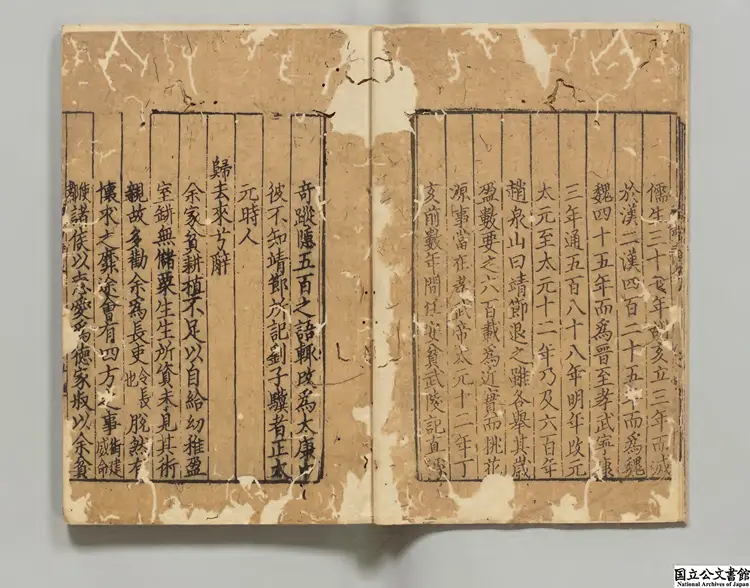 儒生三十七年胡亥立三年而滅
於漢二漢四百二十五年而爲魏
魏四十五年而爲晉至孝武寧康
三年通五百八十八年明年改元
太元至太元十二年乃及六百年
趙泉山曰靖節退之雖各舉其歲
盈數要之六百載爲近實而桃花
源事當在孝武帝太元十二年丁
亥前數年間任安貧武陵記直
奇蹤隱五百之語輒改爲太康中
彼不知靖節所記劉子驥者正太
元時人
歸去來兮辭
余家貧耕植不足以自給幼稚盈
室缾無儲粟生生所資未見其術
親故多勸余爲長吏令長也脫然有
懷求之靡途會有四方之事衛建威命
諸侯以惠愛爲德家叔以余貧
国立公文書館
National Archives of Japan